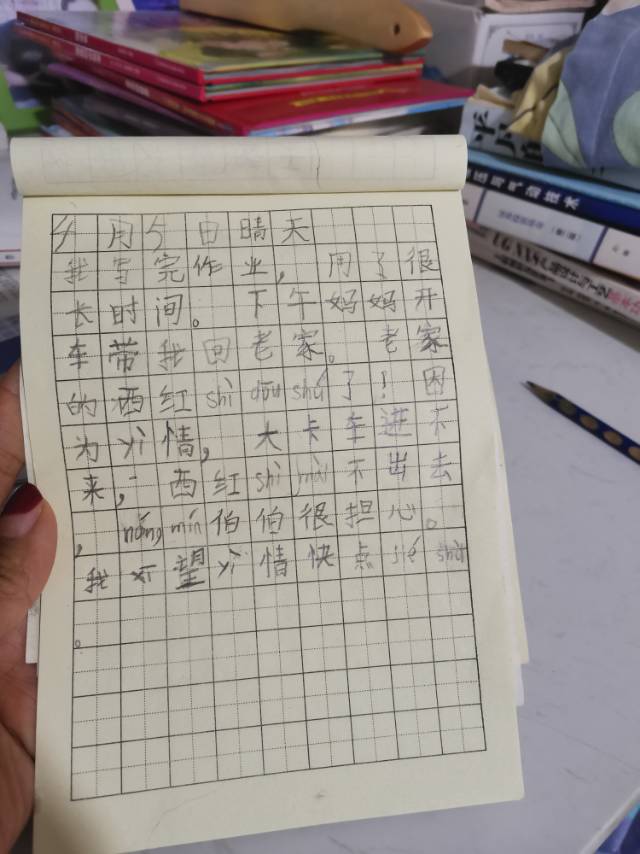 4月5日晴天
我写完作业，用了很
长时间。下午妈妈开
车带我回老家。老家
的西红shì dōu shú了！因
为yì情，大卡车进不
来，西红shì yùn不出去
，nóng mín伯伯很担心。
我xī望yì情快点jié shù
。
压与气动技术